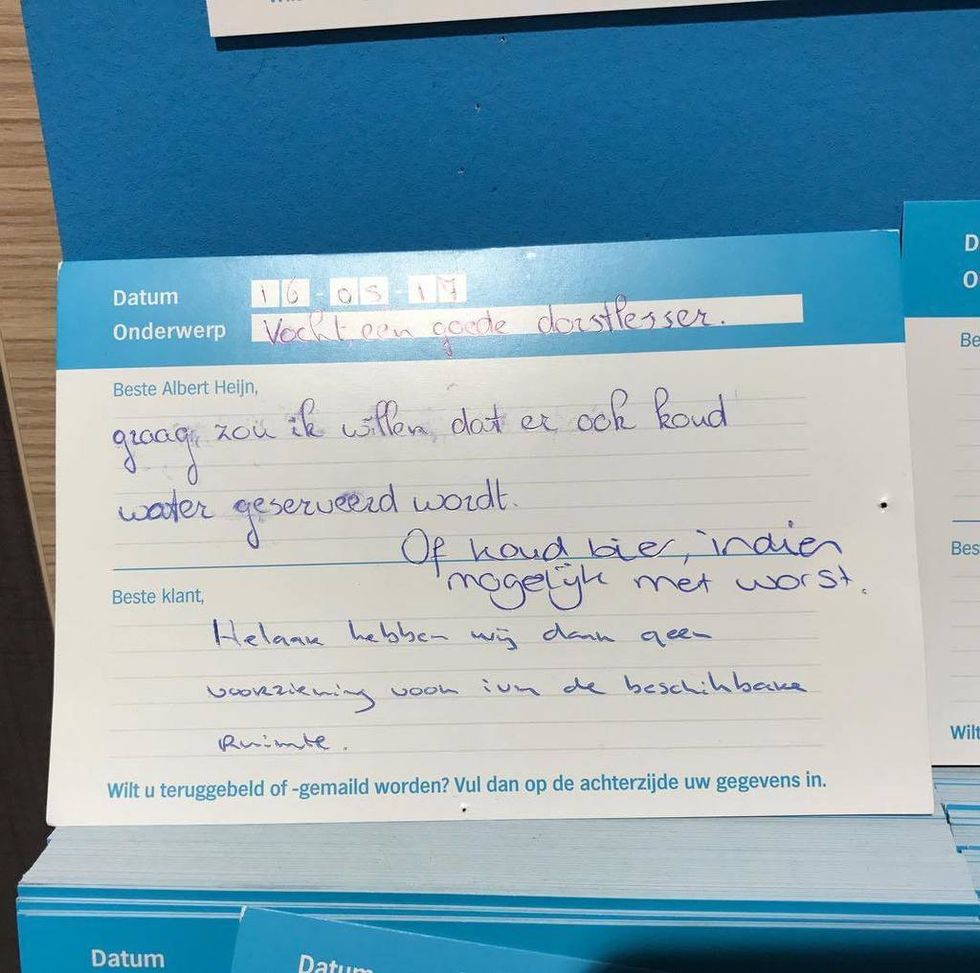 Datum 16-05-17
Onderwerp Vocht, een goede dorstlesser.
Beste Albert Heijn,
graag zou ik willen dat er ook koud
water geserveerd wordt.
Of koud bier, indien
mogelijk met worst.
Beste klant,
Helaas hebben wij daar geen
voorziening voor ivm de beschikbare
ruimte.
Wilt u teruggebeld of -gemaild worden? Vul dan op de achterzijde uw gegevens in.
D
O
Be
Bes
Wilt
Datum
Datum